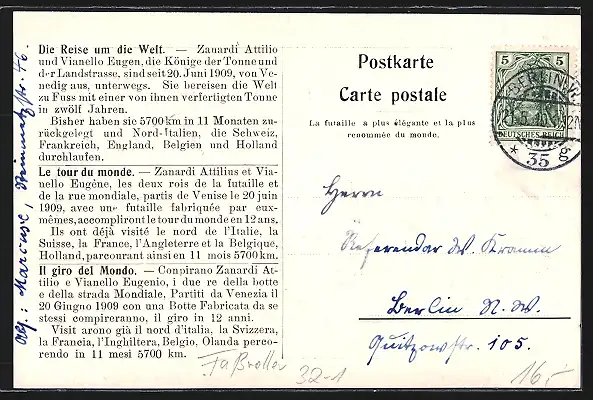 Die Reise um die Welt. — Zanardi Attilio
und Vianello Eugen, die Könige der Tonne und
der Landstrasse, sind seit 20. Juni 1909, von Ve-
nedig aus, unterwegs. Sie bereisen die Welt
zu Fuss mit einer von ihnen verfertigten Tonne
in zwölf Jahren.
Bisher haben sie 5700 km in 11 Monaten zu-
rückgelegt und Nord-Italien, die Schweiz,
Frankreich, England, Belgien und Holland
durchlaufen.
Le tour du monde. — Zanardi Attilius et Via-
nello Eugène, les deux rois de la futaille et
de la rue mondiale, partis de Venise le 20 juin
1909, avec une futaille fabriquée par eux-
mêmes, accompliront le tour du monde en 12 ans.
Ils ont déjà visité le nord de l'Italie, la
Suisse, la France, l'Angleterre et la Belgique,
Holland, parcourant ainsi en 11 mois 5700 km.
Il giro del Mondo. — Conpirano Zanardi At-
tilio e Vianello Eugenio, i due re della botte
e della strada Mondiale, Partiti da Venezia il
20 Giugno 1909 con una Botte Fabricata da se
stessi compireranno, il giro in 12 anni.
Visit arono già il nord d'italia, la Svizzera,
la Francia, l'Inghiltera, Belgio, Olanda perco-
rendo in 11 mesi 5700 km.
Postkarte
Carte postale
La futaille a plus élégante et la plus
renommée du monde.
5 5
DEUTSCHES REICH
BERLIN W
* 35 g
Herrn
Referendar
Berlin N. W.
Quitzowstr. 105.
Abs.: Marcuse, 46
Faßroller
32-1
16,-